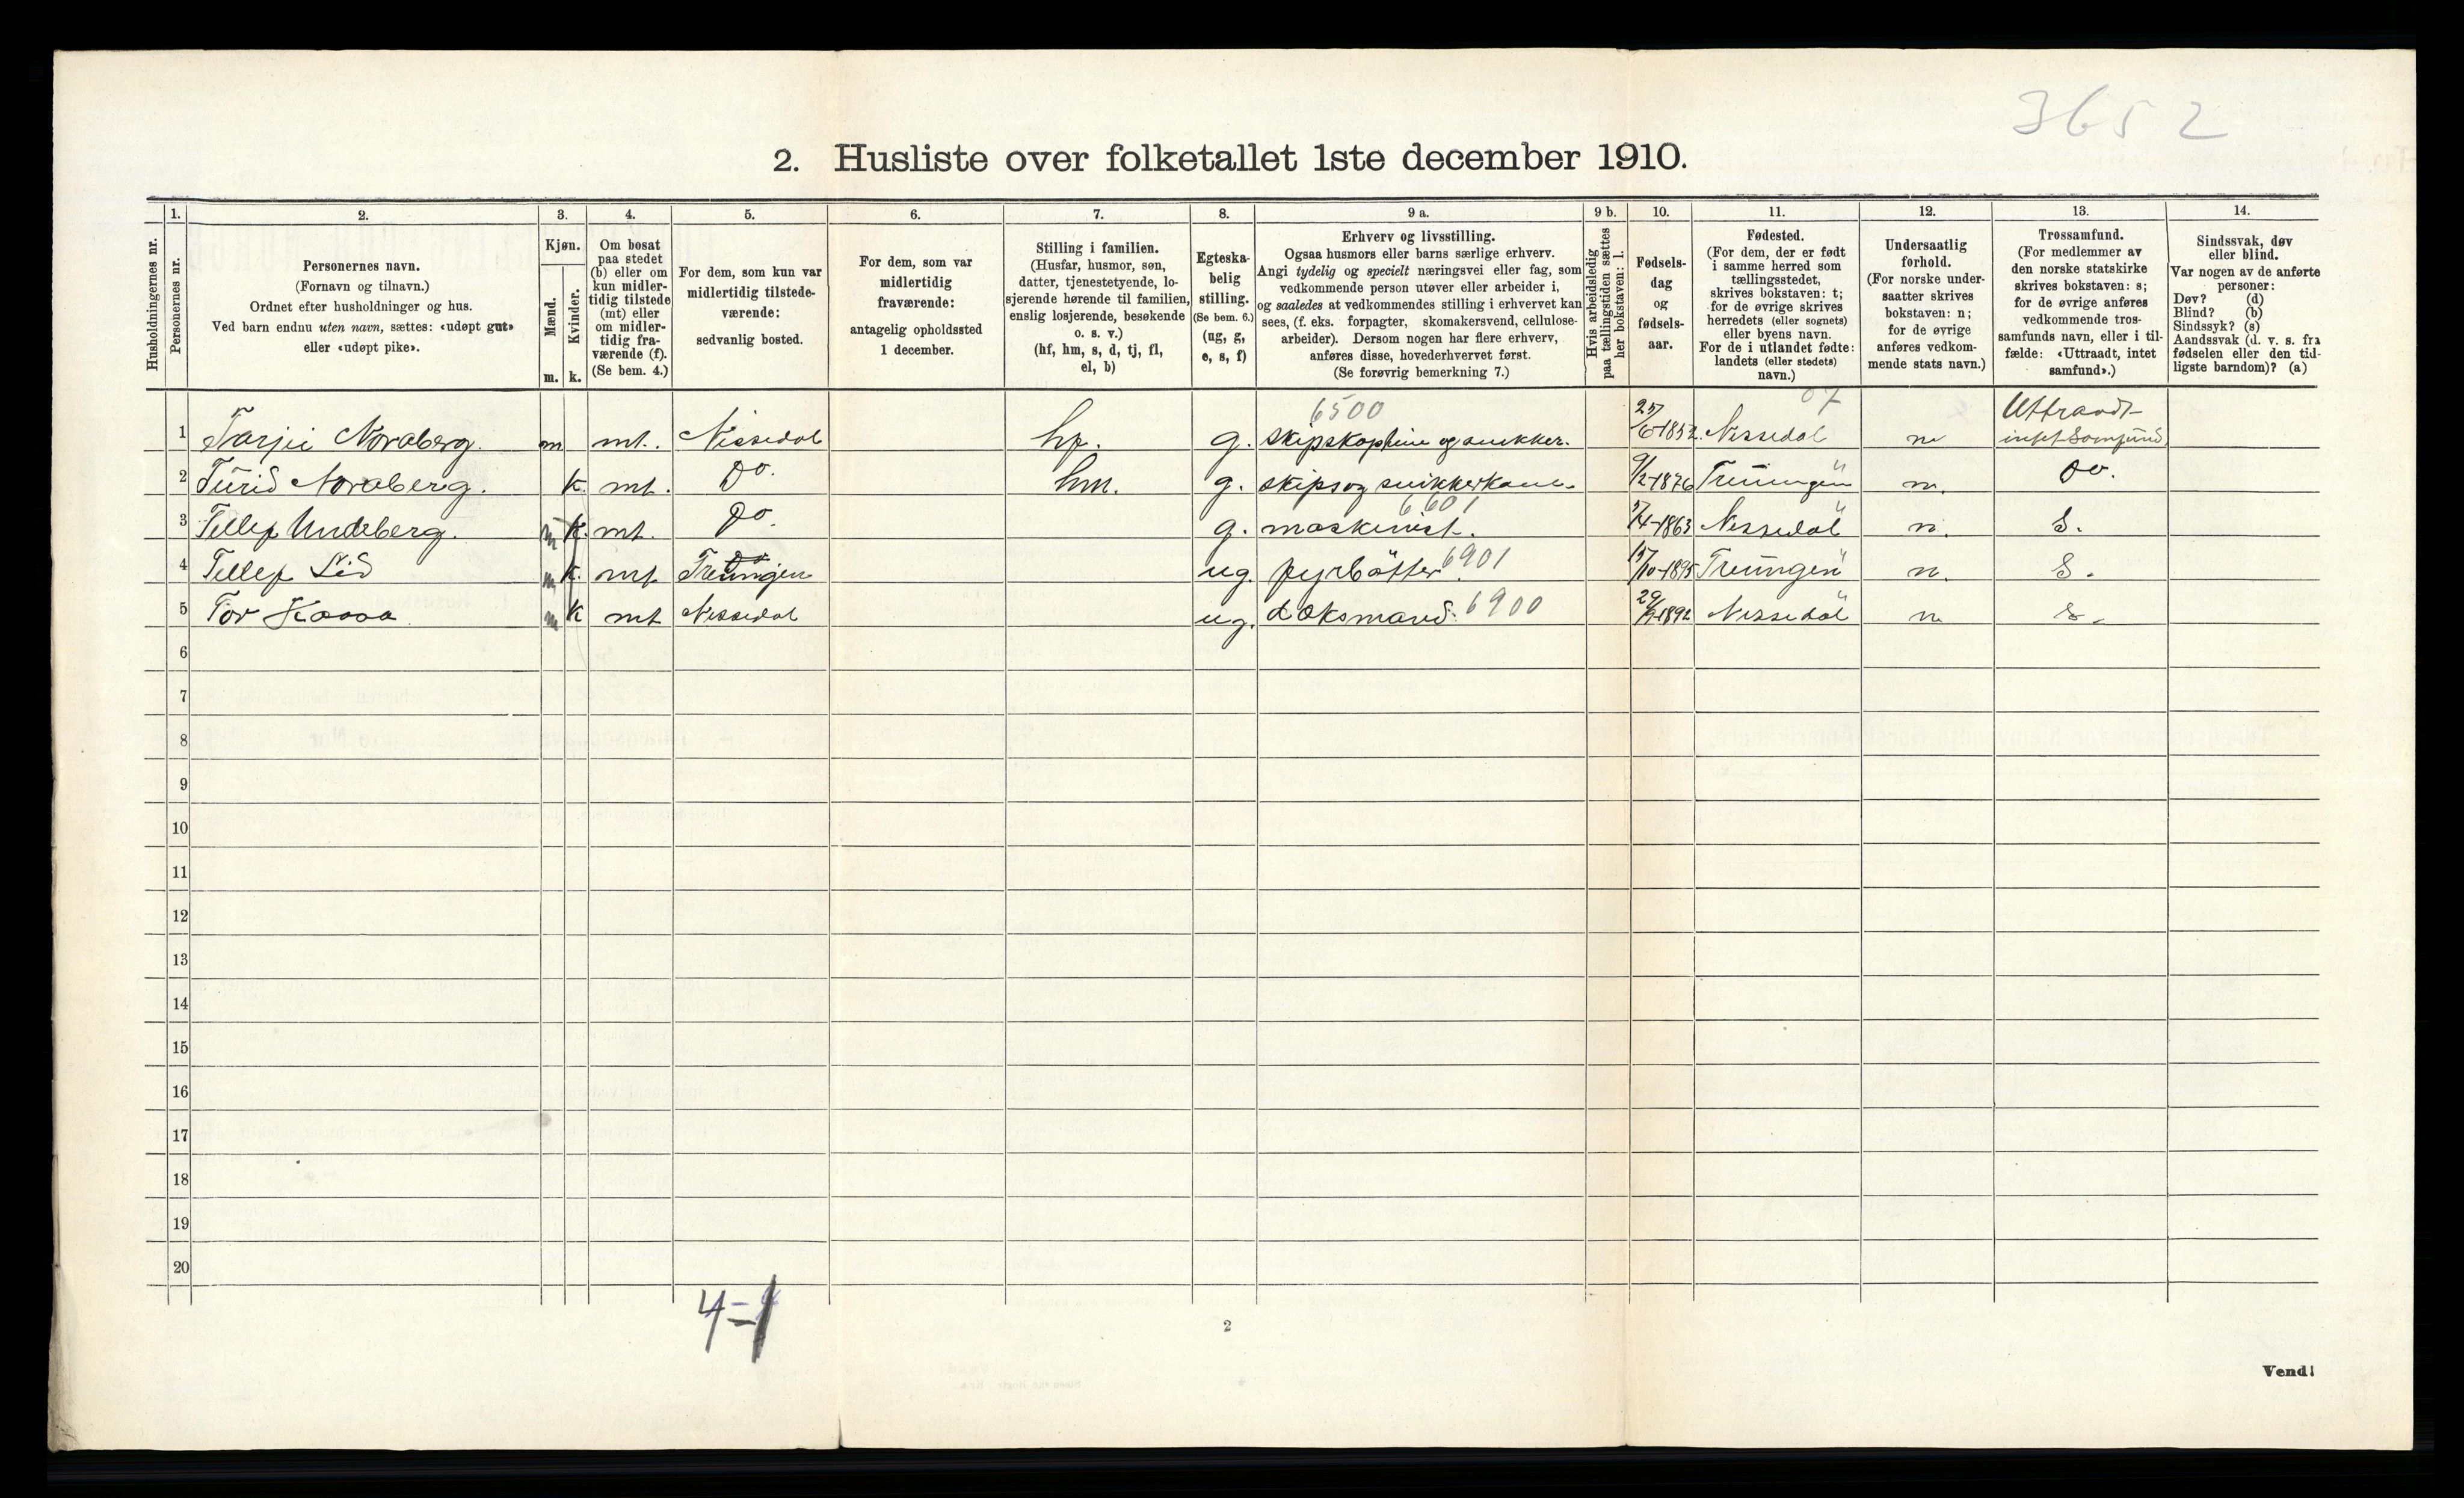 3652
2. Husliste over folketallet 1ste december 1910.
Husholdningernes nr.
1.
Personernes nr.
2.
Personernes navn.
(Fornavn og tilnavn.)
Ordnet efter husholdninger og hus.
Ved barn endnu uten navn, sættes: «udøpt gut»
eller «udøpt pike».
3.
Kjøn.
Mænd.
Kvinder.
m. k.
4.
Om bosat
paa stedet
(b) eller om
kun midler-
tidig tilstede
(mt) eller
om midler-
tidig fra-
værende (f).
(Se bem. 4.)
5.
For dem, som kun var
midlertidig tilstede-
værende:
sedvanlig bosted.
6.
For dem, som var
midlertidig
fraværende:
antagelig opholdssted
1 december.
7.
Stilling i familien.
(Husfar, husmor, søn,
datter, tjenestetyende, lo-
sjerende hørende til familien,
enslig losjerende, besøkende
o. s. v.)
(hf, hm, s, d, tj, fl,
el, b)
8.
Egteska-
belig
stilling.
(Se bem. 6.)
(ug, g,
e, s, f)
9 a.
Erhverv og livsstilling.
Ogsaa husmors eller barns særlige erhverv.
Angi tydelig og specielt næringsvei eller fag, som
vedkommende person utøver eller arbeider i,
og saaledes at vedkommendes stilling i erhvervet kan
sees, (f. eks. forpagter, skomakersvend, cellulose-
arbeider). Dersom nogen har flere erhverv,
anføres disse, hovederhvervet først.
(Se forøvrig bemerkning 7.)
9 b.
Hvis arbeidsledig
paa tællingstiden sættes
her bokstaven: l.
10.
Fødsels-
dag
og
fødsels-
aar.
11.
Fødested.
(For dem, der er født
i samme herred som
tællingsstedet,
skrives bokstaven: t;
for de øvrige skrives
herredets (eller sognets)
eller byens navn.
For de i utlandet fødte:
landets (eller stedets)
navn.)
12.
Undersaatlig
forhold.
(For norske under-
saatter skrives
bokstaven: n;
for de øvrige
anføres vedkom-
mende stats navn.)
13.
Trossamfund.
(For medlemmer av
den norske statskirke
skrives bokstaven: s;
for de øvrige anføres
vedkommende tros-
samfunds navn, eller i til-
fælde: «Uttraadt, intet
samfund».)
14.
Sindssvak, døv
eller blind.
Var nogen av de anførte
personer:
Døv? (d)
Blind? (b)
Sindssyk? (s)
Aandssvak (d. v. s. fra
fødselen eller den tid-
ligste barndom)? (a)
6500 07 Uttraadt
1 Tarjei Noraberg. m mt. Nissedal hf. g. skipskaptein og snekker. 25/6-1852. Nissedal n intet Samfund
2 Turid Noraberg. k. mt. Do. hm. g. skips og snikkerkone 9/2-1876 Treungen n. Do.
6601
3 Tellef Undeberg. m k. mt. Do. g. maskinist. 5/4-1863 Nissedal n. S.
4 Tellef Lid m k. mt. Do Treungen ug. fyrbøtter 6901 15/10-1895 Treungen n. S.
5 Tor Kaasa m k mt Nissedal ug. dæksmand. 6900 1892 Nissedal n s.
6
7
8
9
10
11
12
13
14
15
16
17
18
19
20
4-1
2
Vend!